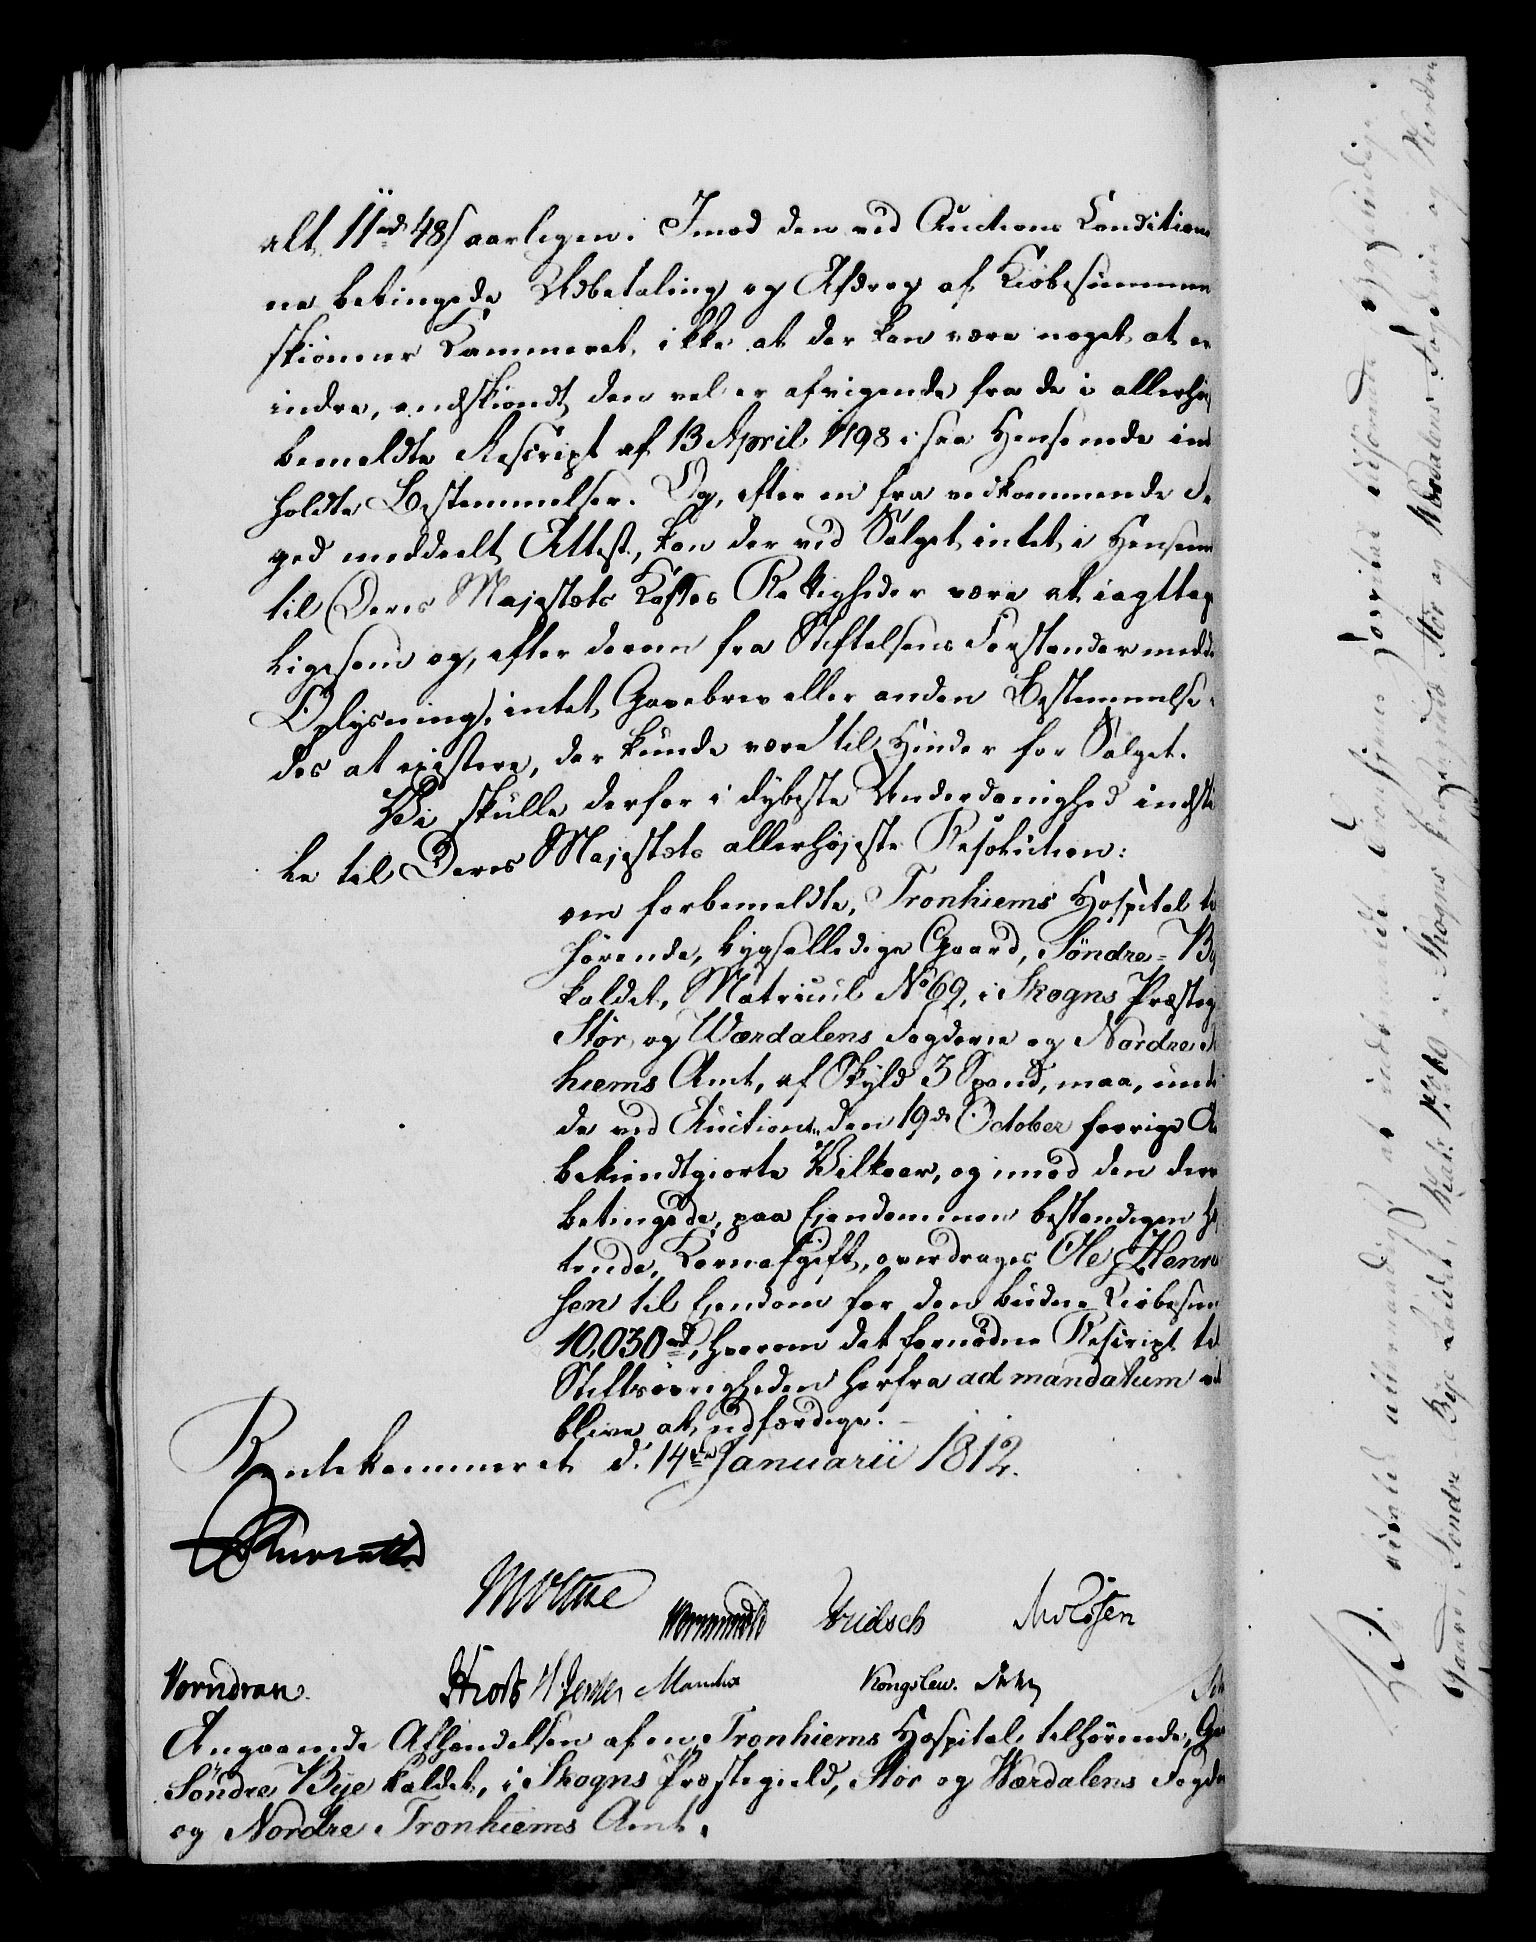 alt 11 rd 48 s aarligen. Imod den ved Auctions Condition
ne betingede Udbetaling og Afdrag af Kiøbesummen
skiønner Kammeret ikke at der kan være noget at er
indre, endskiøndt den vel er afvigende fra de i allerhøi
bemeldte Rescript af 13 April 1798 i saa Henseende ind
holdte Bestemmelser. Og, efter en fra vedkommende Fo
ged meddeelt Attest, kan der ved Salget intet i Henseen
til Deres Majestæts Kasses Rettigheder være at iagttag
ligesom og, efter derom fra Stiftelsens Forstander medde
Oplysning, intet Gavebrev eller anden Bestemmelse
des at existere, der kunde være til Hinder for Salget.
Vi skulle derfor i dybeste Underdanighed indstil
le til Deres Majestæts allerhøjeste Resolution:
om forbemeldte, Tronhiems Hospital til
hørende, bygselledige Gaard, Søndre=By
kaldet, Matricul No 69, i Skogns Præsteg
Stør og Værdalens Fogderie og Nordre
hiems Amt, af Skyld 3 Spand, maa, unde
de ved Auctionen den 19de October forrige Aa
bekiendtgiorte Vilkaar, og imod den derv
betingede, paa Ejendommen bestandigen hæf
tende, Kornafgift, overdrages Ole Henrik
sen til Ejendom for den budne Kiøbesum
10,030 rd, hvorom det fornødne Rescript til
Stiftsøvrigheden herfra ad mandatum vil
blive at udfærdige.
Rentekammeret d. 14de Januarii 1812.
Moltke
Wormskiold Fridsch
Vorndran. Monrad Kongslew.
Angaaende Afhændelsen af en Tronhiems Hospital tilhørende, Ga
Søndre Bye kaldet, i Skogns Præstegield, Stør og Værdalens Fogde
og Nordre Tronhiems Amt.